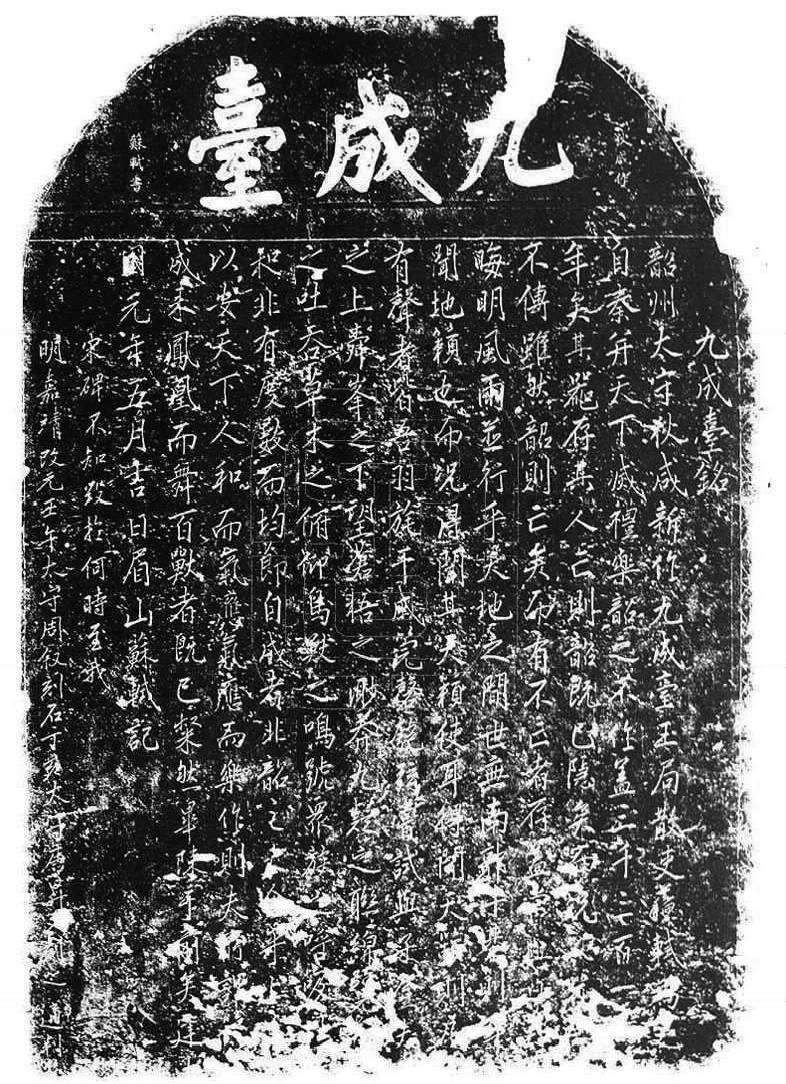 九成臺
蘇軾書
九成臺銘
韶州太守狄咸新作九成臺玉局散吏蘇軾為之
自秦并天下滅禮樂韶之不作蓋千三百一
年矣其器存其人亡則韶既已隱矣而況於
不傳雖然韶則亡矣而有不亡者存蓋常與日
晦明風雨並行乎天地之間世無南郭子綦則耳
聞地籟也而況得聞其天籟使耳得聞天籟則凡
有聲者皆吾羽旄干戚管磬匏絃嘗試與子登夫
之上舜峯之下望蒼梧之渺莽九疑之聯綿覽
之吐吞草木之俯仰鳥獸之鳴號眾竅之呼吸
和非有度數而均節自成者非韶之大全乎上
以安天下人和而氣應氣應而樂作則夫所謂
成來鳳凰而舞百獸者既已粲然畢陳于前矣建
國元年五月吉日眉山蘇軾記
宋碑不知毀於何時至我
明嘉靖改元壬午太守周叙刻石丁亥太守